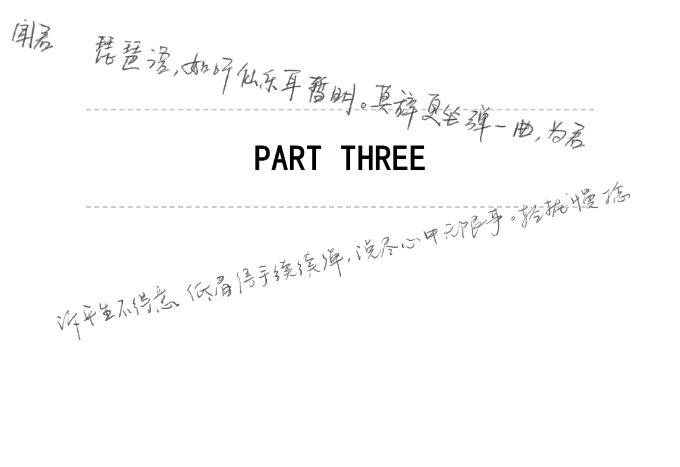 闻君 琵琶语,如听仙乐耳暂明。莫辞更坐弹一曲,为君
PART THREE
诉平生不得意。低眉信手续续弹,说尽心中无限事。轻拢慢捻